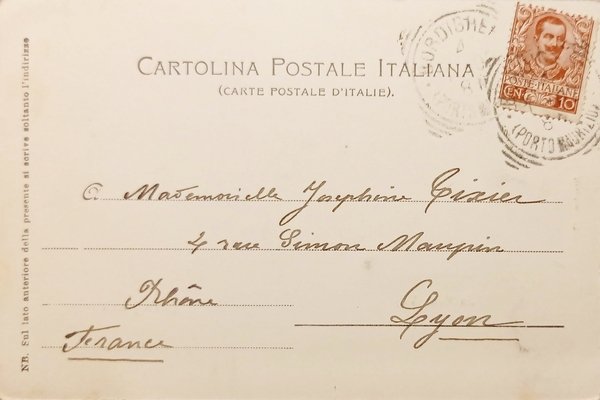 CARTOLINA POSTALE ITALIANA
(CARTE POSTALE D'ITALIE).
POSTE ITALIANE
CEN. 10
(PORTO MAURIZIO)
a Mademoiselle Josephine Tixier
4 rue Simon Maupin
Rhône
Lyon
France
NB. Sul lato anteriore della presente si scrive soltanto l'indirizzo